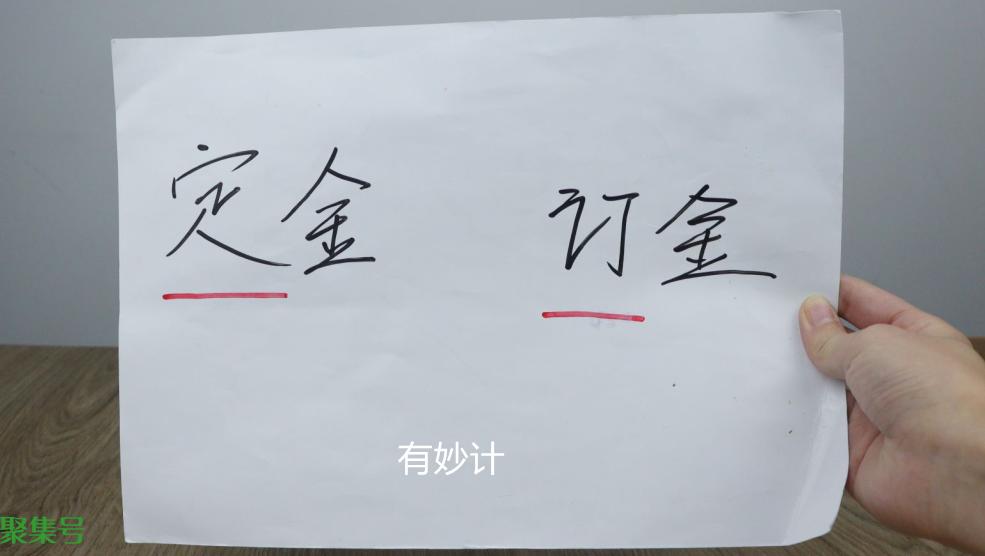 定金 订金
有妙计
聚集号